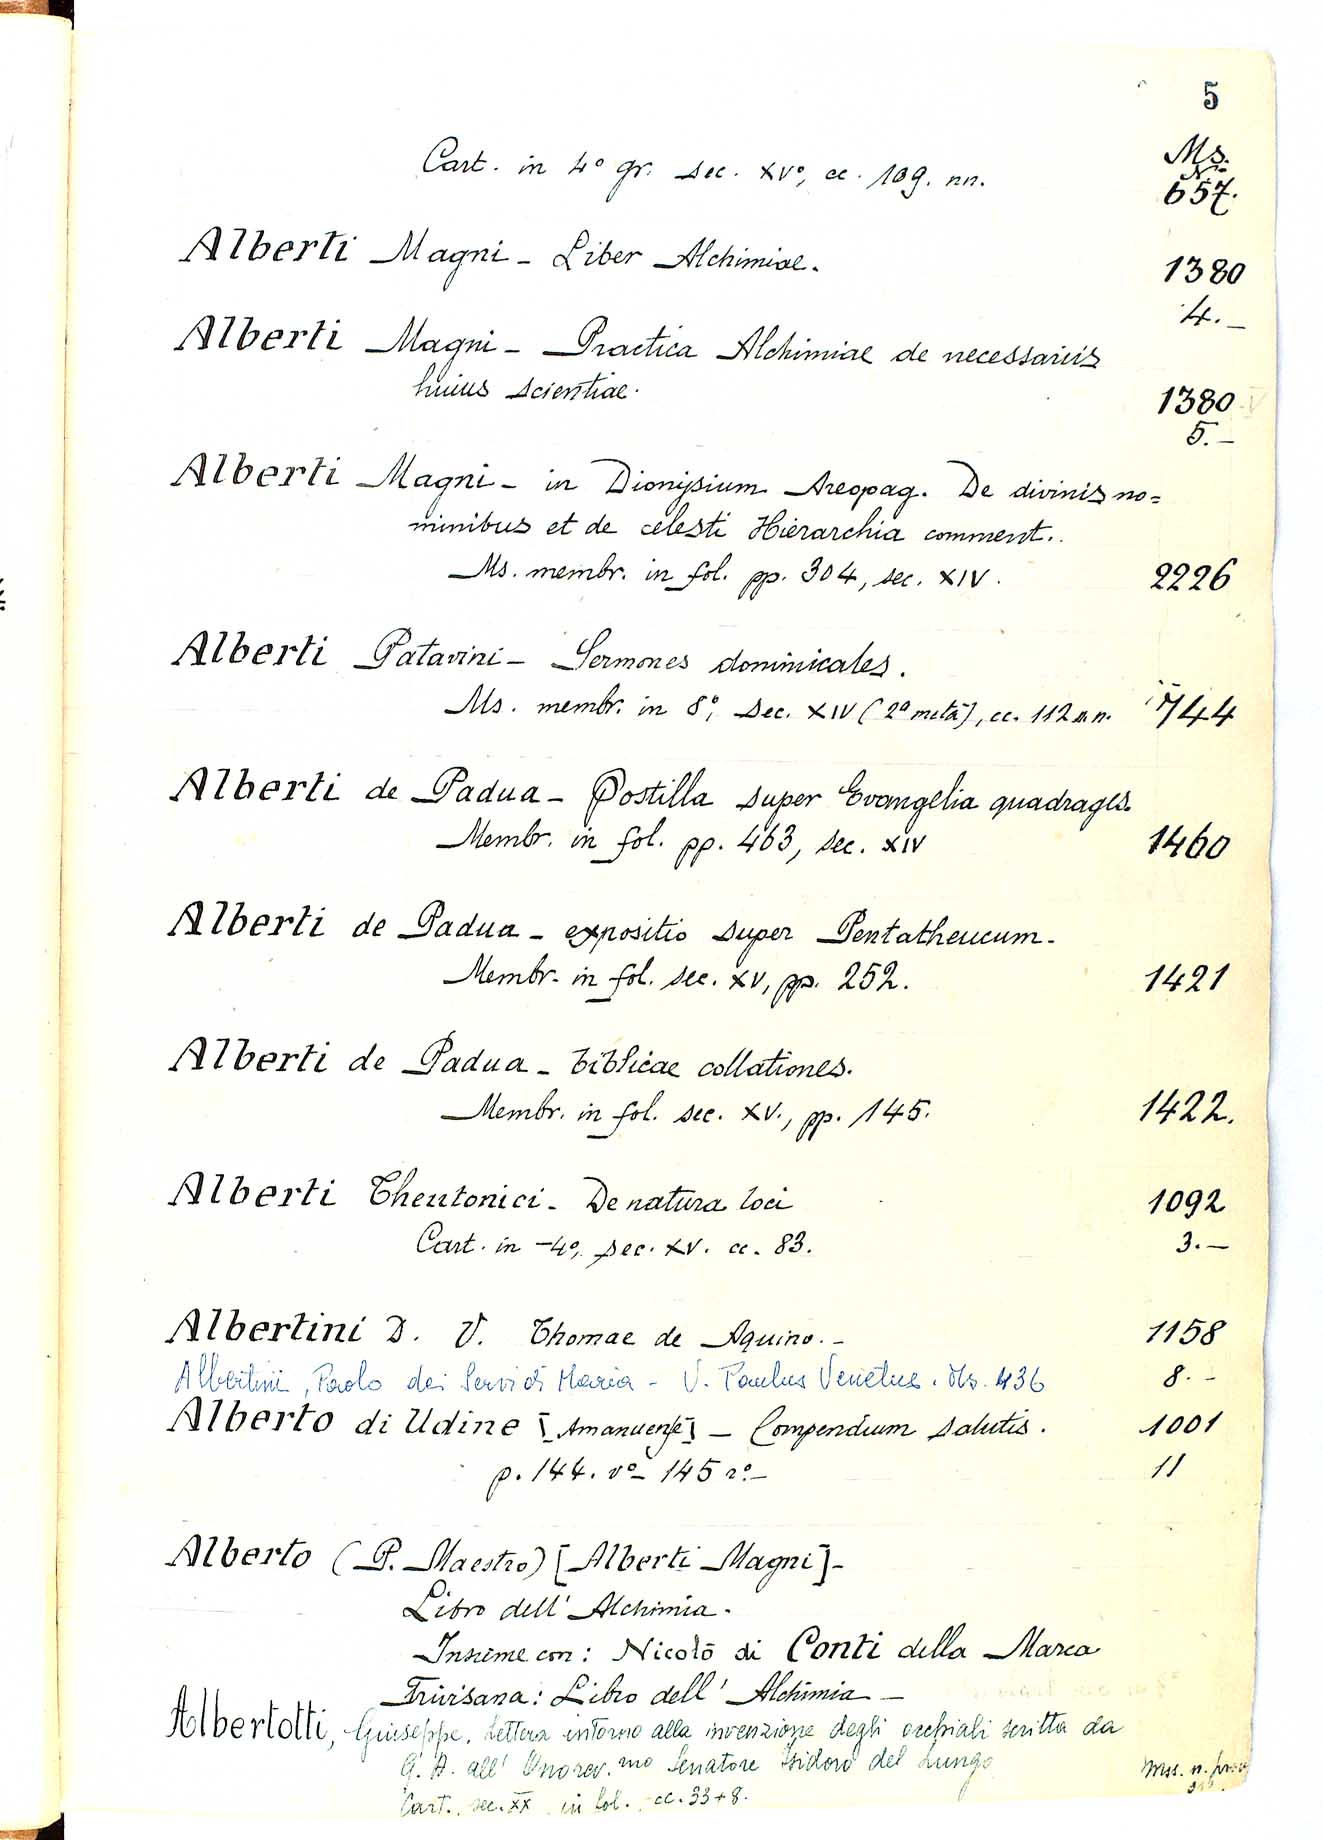 5
Ms.
N.
Cart. in 4º gr. sec. XVº, cc. 109. nn. 657.
Alberti Magni - Liber Alchimiae. 1380
4.-
Alberti Magni - Practica Alchimiae de necessariis
huius scientiae. 1380
5.-
Alberti Magni - in Dionysium Areopag. De divinis no=
minibus et de celesti Hierarchia comment..
Ms. membr. in fol. pp. 304, sec. XIV. 2226
Alberti Patavini - Sermones dominicales.
Ms. membr. in 8º, sec. XIV (2ª metà), cc. 112 n n. 1744
Alberti de Padua - Postilla super Evangelia quadrages.
Membr. in fol. pp. 463, sec. XIV 1460
Alberti de Padua - expositio super Pentatheucum.
Membr. in fol. sec. XV, pp. 252. 1421
Alberti de Padua - biblicae collationes.
Membr. in fol. sec. XV., pp. 145. 1422.
Alberti Theutonici - De natura loci 1092
Cart. in -4º, sec. XV. cc. 83. 3.-
Albertini D. V. Thomae de Aquino. - 1158
Albertini, Paolo dei Servi di Maria - V. Paulus Venetus. Ms. 436 8.-
Alberto di Udine [Amanuense] - Compendium salutis. 1001
p. 144. vº - 145 rº.- 11
Alberto (P. Maestro) [Alberti Magni] -
Libro dell' Alchimia.
Insieme con: Nicolò di Conti della Marca
Trivisana: Libro dell' Alchimia -
Albertotti, Giuseppe. Lettera intorno alla invenzione degli occhiali scritta da
G. A. all' Onorev.mo Senatore Isidoro del Lungo
Cart., sec. XX, in fol., cc. 33+8. Mss. n. prov